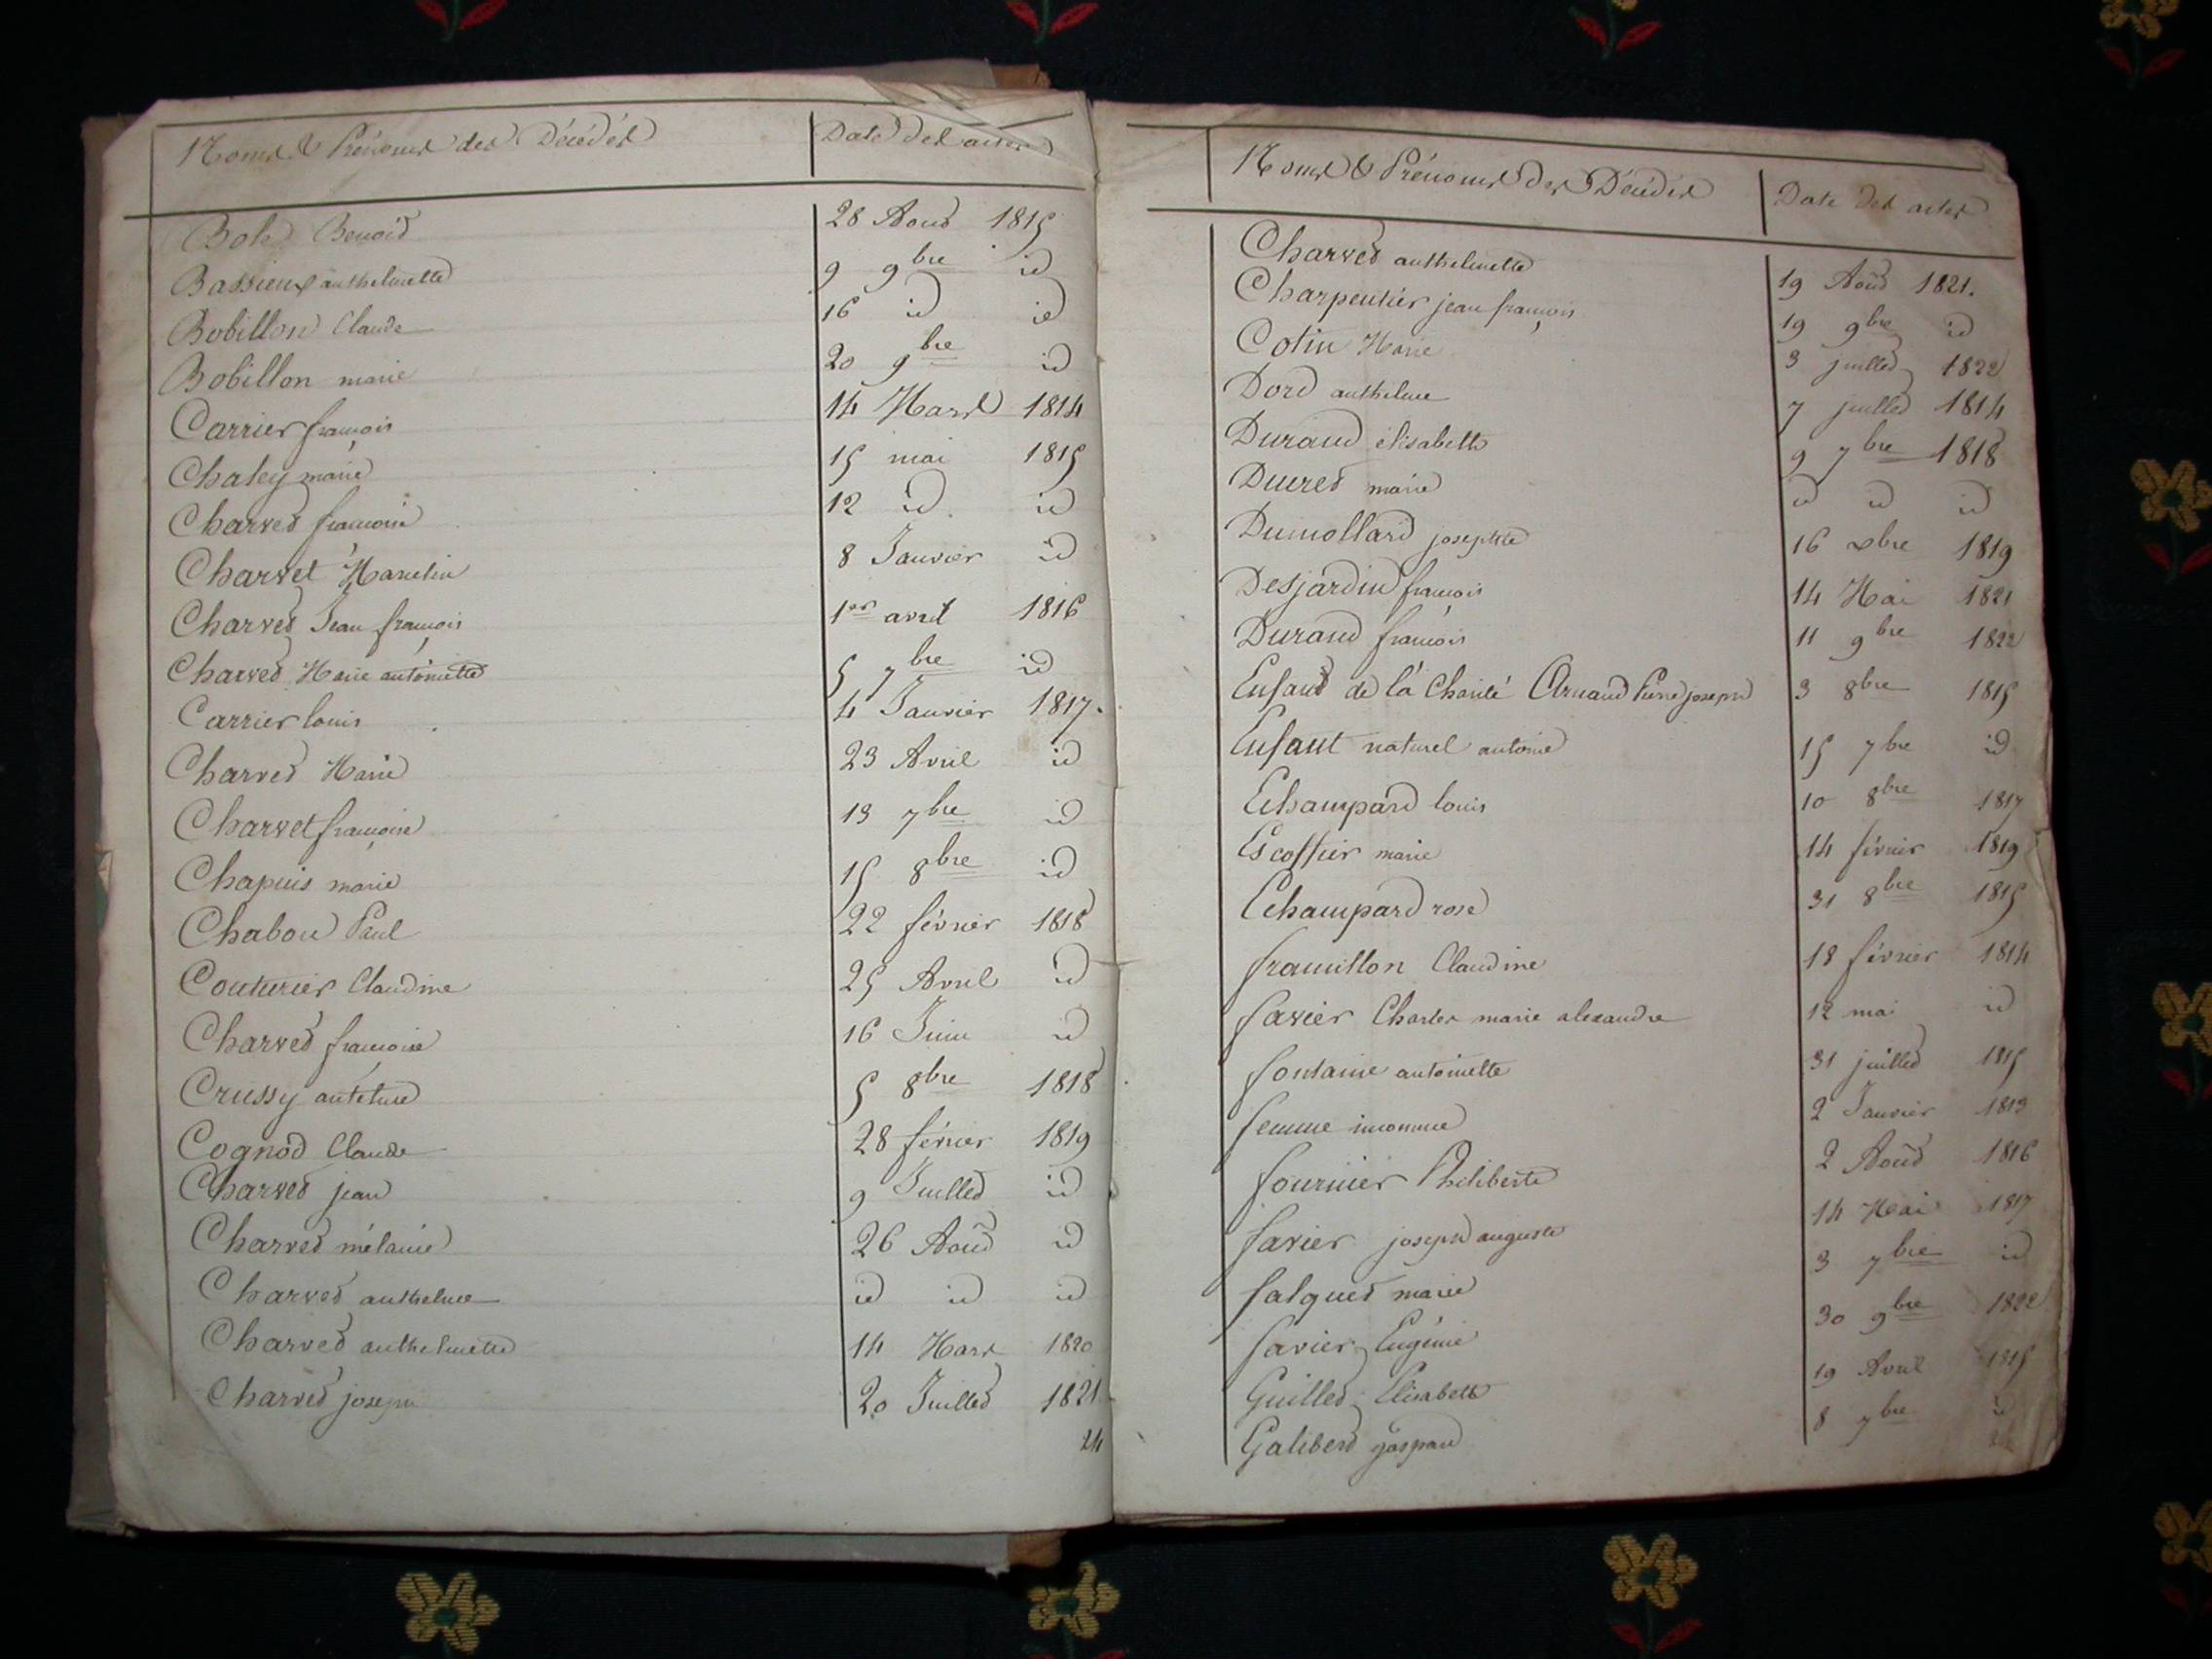 Noms & Prénoms des Décédés Date des actes
Bole Benoid 28 Aoud 1815
Bassieux anthelmette 9 9bre id
Bobillon Claude 16 id id
Bobillon marie 20 9bre id
Carrier françois 14 Mars 1814
Chaley marie 15 mai 1815
Charved françoise 12 id id
Charvet 8 Janvier id
Charved Jean françois 1er avril 1816
Charved Marie antoinette 5 7bre id
Carrier louis 4 Janvier 1817.
Charved Marie 23 Avril id
Charvet françoise 13 7bre id
Chapuis marie 15 8bre id
Chabou Paul 22 février 1818
Couturier Claudine 25 Avril id
Charved françoise 16 Juin id
Crussy antelme 5 8bre 1818
Cognod Claude 28 février 1819
Charved jean 9 Juilled id
Charved mélanie 26 Aoûd id
Charved anthelme id id id
Charved anthelmette 14 Mars 1820
Charved joseph 20 Juilled 1821
24
Noms & Prénoms des Décédés Date des actes
Charved anthelmette 19 Aoûd 1821.
Charpentier jean françois 19 9bre id
Cotin Marie 3 juilled 1822
Dord anthelme 7 juilled 1814
Durand élisabeth 9 7bre 1818
Ducred marie id id id
Dumollard josephte 16 xbre 1819
Desjardin françois 14 Mai 1821
Durand françois 11 9bre 1822
Enfand de la Charité Arnaud Pierre joseph 3 8bre 1815
Enfant naturel antoine 15 7bre id
Echampard louis 10 8bre 1817
Escoffier marie 14 février 1819
Echampard rose 31 8bre 1815
framillon Claudine 18 février 1814
favier Charles marie alexandre 12 mai id
fontaine antoinette 31 juilled 1815
femme inconnue 2 Janvier 1813
fournier Philiberte 2 Aoûd 1816
favier joseph auguste 14 Mai 1817
falqued marie 3 7bre id
favier Eugénie 30 9bre 1822
Guilled Elisabeth 19 Avril 1815
Galiberd gaspard 8 7bre id